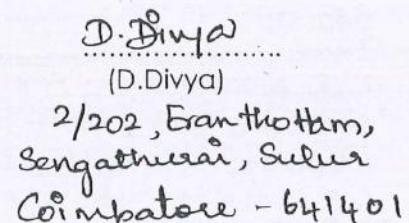 D. Divya
(D.Divya)
2/202, Eranthottam,
Sengathurai, Sulur
Coimbatore - 641401